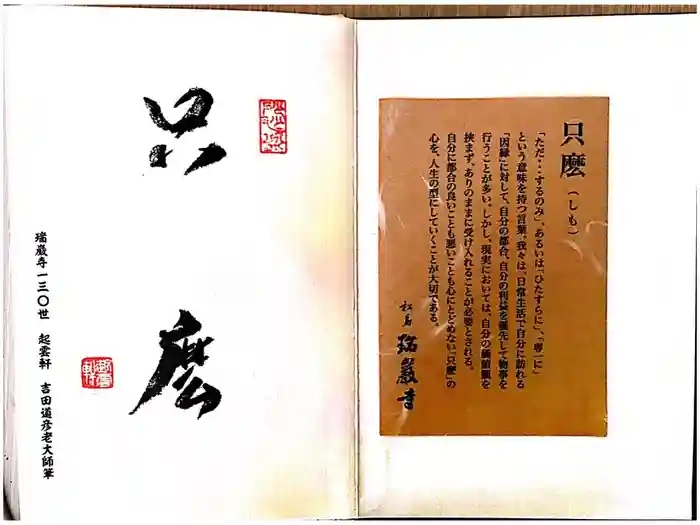 只麼
(しも)
「ただ・・するのみ」、あるいは「ひたすらに」、「専一に」
という意味を持つ言葉。我々は、日常生活で自分に訪れる
「因縁」に対して、自分の都合、自分の利益を優先して物事を
行うことが多い。しかし、現実においては、自分の価値観を
挟まず、ありのままに受け入れることが必要とされる。
自分に都合の良いことも悪いことも心にとどめない「只麼」の
心を、人生の型にしていくことが大切である。
松島 瑞巖寺
只麼
瑞巌寺一三〇世 起雲軒 吉田道彦老大師筆